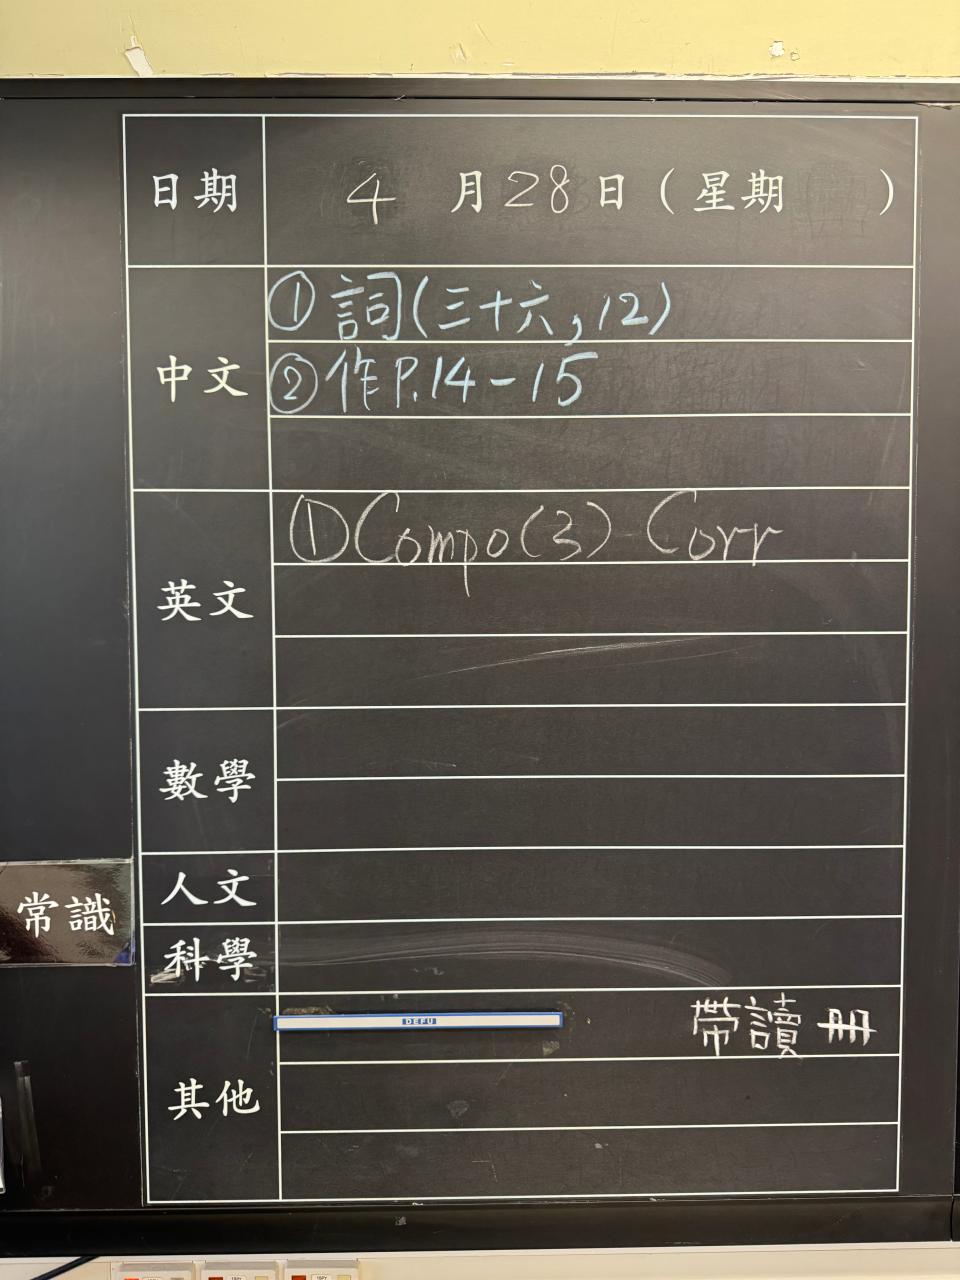 日期 4月28日(星期 )
中文
①詞(三十六,12)
②作P.14-15
英文
①Compo(3)-Corr
數學
人文
常識
科學
其他
DEFU
帶讀冊